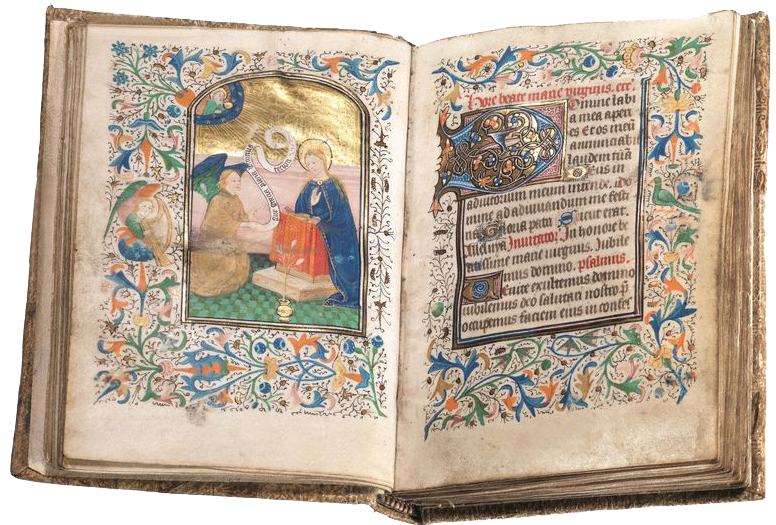 Hore beate marie virginis. etc.
Domine labi
a mea aperi
es Et os meū
annunciab
laudem tuā
Deus in
adiutorium meum intende. do
mine ad adiuuandum me festi
Gloria patri Sicut erat.
Alleluya Inuitator. In honore be
me marie virginis. Iubile
mus domino. psalmus.
Venite exultemus domino
iubilemus deo salutari nostro. p̄
occupemus faciem eius in confes